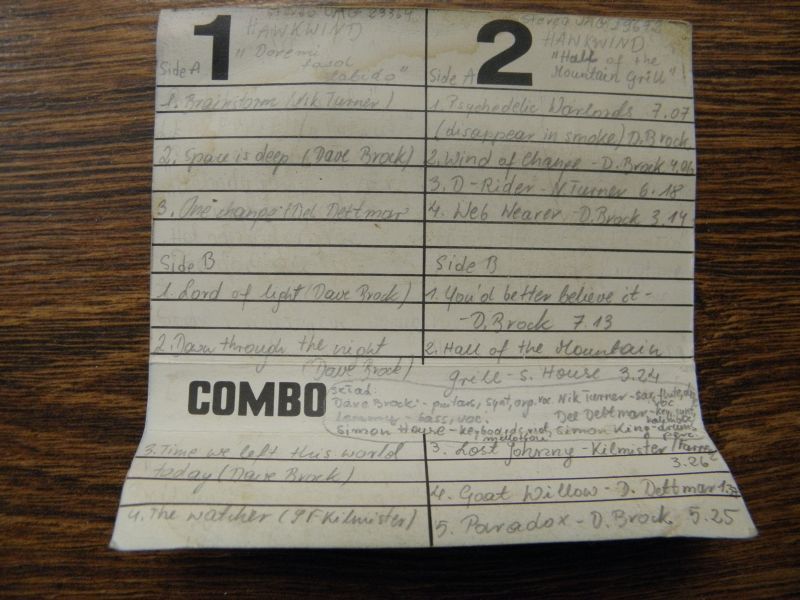 1
stereo UAG 29364
HAWKWIND
" Doremi
fasol
latido "
Side A
1. Brainstorm (Nik Turner)
2. Space is deep (Dave Brock)
3. One change (Del Dettmar
Side B
1. Lord of light (Dave Brock)
2. Down through the night
(Dave Brock)
3. Time we left this world
today (Dave Brock)
4. The watcher (IF Kilmister)
COMBO
2
stereo UAG 29672
HAWKWIND
"Hall of the
Mountain Grill"
Side A
1. Psychedelic Warlords 7.07
(disappear in smoke) D. Brock
2. Wind of change - D. Brock 4.06
3. D-Rider - N Turner 6.18
4. Web Wearer - D. Brock 3.14
Side B
1. You'd better believe it -
- D. Brock 7.13
2. Hall of the Mountain
grill - S. House 3.24
skład:
Dave Brock - guitars, synt, org. voc Nik Turner - sax, flute,
voc
Lemmy - bass, voc. Del Dettmar - key, synt,
Simon House - keyboards, viol, Simon King - drums
mellotron perc.
3. Lost Johnny - Kilmister /
3.26
4. Goat Willow - D. Dettmar
5. Paradox - D. Brock 5.25